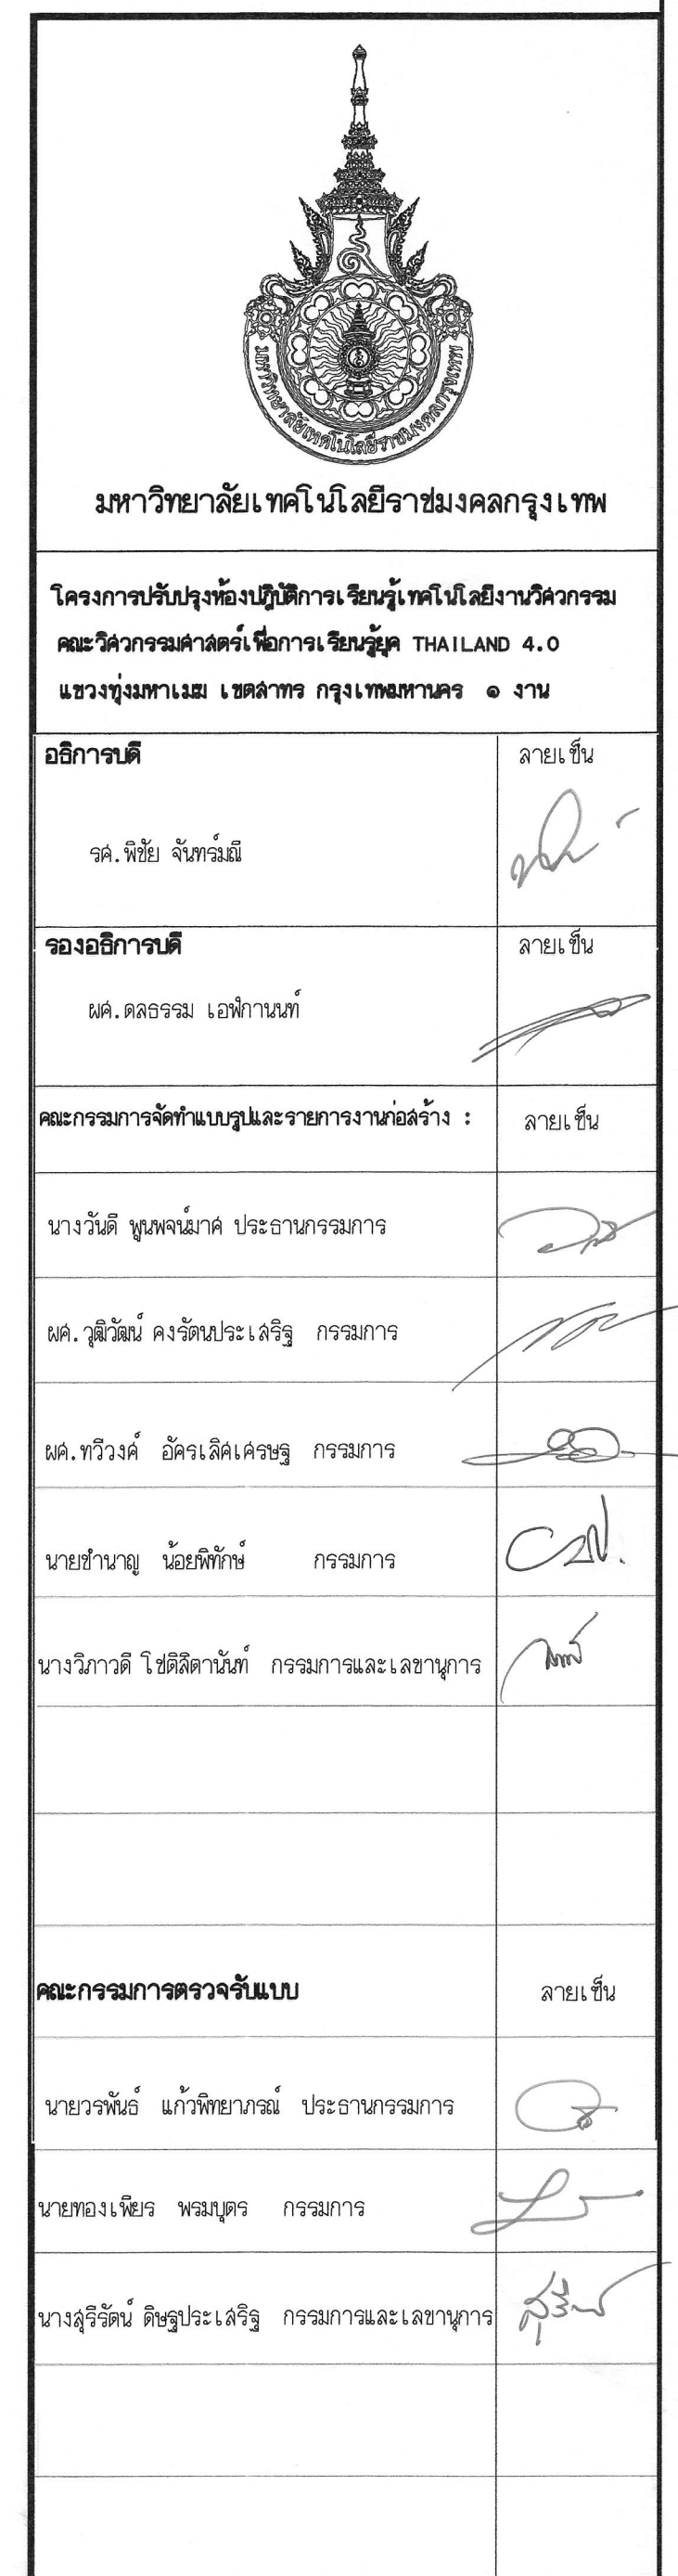 มหาวิทยาลัยเทคโนโลยีราชมงคลกรุงเทพ
มหาวิทยาลัยเทคโนโลยีราชมงคลกรุงเทพ
โครงการปรับปรุงห้องปฎิบัติการเรียนรู้เทคโนโลยีงานวิศวกรรม
คณะวิศวกรรมศาสตร์เพื่อการเรียนรู้ยุค THAILAND 4.0
แขวงทุ่งมหาเมฆ เขตสาทร กรุงเทพมหานคร ๑ งาน
อธิการบดี ลายเซ็น
รศ.พิชัย จันทร์มณี
รองอธิการบดี ลายเซ็น
ผศ.ดลธรรม เอฬกานนท์
คณะกรรมการจัดทำแบบรูปและรายการงานก่อสร้าง : ลายเซ็น
นางวันดี พูนพจน์มาศ ประธานกรรมการ
ผศ.วุฒิวัฒน์ คงรัตนประเสริฐ กรรมการ
ผศ.ทวีวงศ์ อัครเลิศเศรษฐ กรรมการ
นายชำนาญ น้อยพิทักษ์ กรรมการ
นางวิภาวดี โชติสิตานันท์ กรรมการและเลขานุการ
คณะกรรมการตรวจรับแบบ ลายเซ็น
นายวรพันธ์ แก้วพิทยาภรณ์ ประธานกรรมการ
นายทองเพียร พรมบุตร กรรมการ
นางสุรีรัตน์ ดิษฐประเสริฐ กรรมการและเลขานุการ